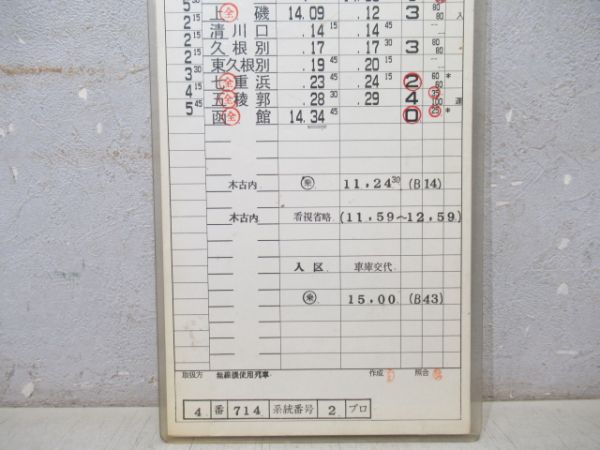 2 15 上 全 磯 14.09 .12 45 3 80 80 入
2 15 清川口 .14 15 .14 45
2 15 久根別 .17 .17 30 3 80 80
2 30 東久根別 .19 45 .20 15
3 15 七 全 重浜 .23 45 .24 15 2 60 60 *
4 45 五 全 稜郭 .28 30 .29 4 35 100 運
5 函 全 館 14.34 45 0 25 *
木古内 乗 11,24 30 (B14)
木古内 看視省略 (11,59~12,59)
入区 車庫交代
乗 15.00 (B43)
取扱方 無線機使用列車 作成 照合
4 番 714 系統番号 2 プロ